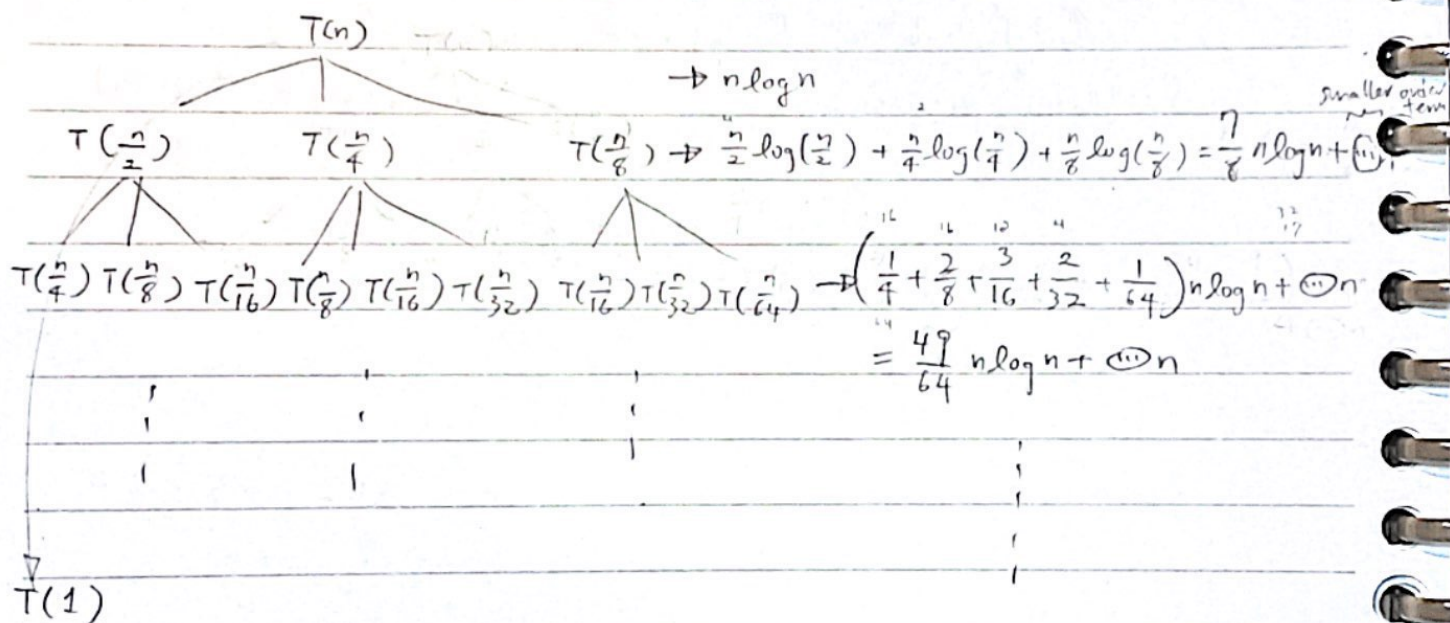 T(n)
→ n log n
smaller order
term
T(n/2) T(n/4) T(n/8) → n/2 log(n/2) + n/4 log(n/4) + n/8 log(n/8) = 7/8 n log n + (...)
T(n/4) T(n/8) T(n/16) T(n/8) T(n/16) T(n/32) T(n/16) T(n/32) T(n/64) → (1/4 + 2/8 + 3/16 + 2/32 + 1/64) n log n + (...) n
= 49/64 n log n + (...) n
T(1)